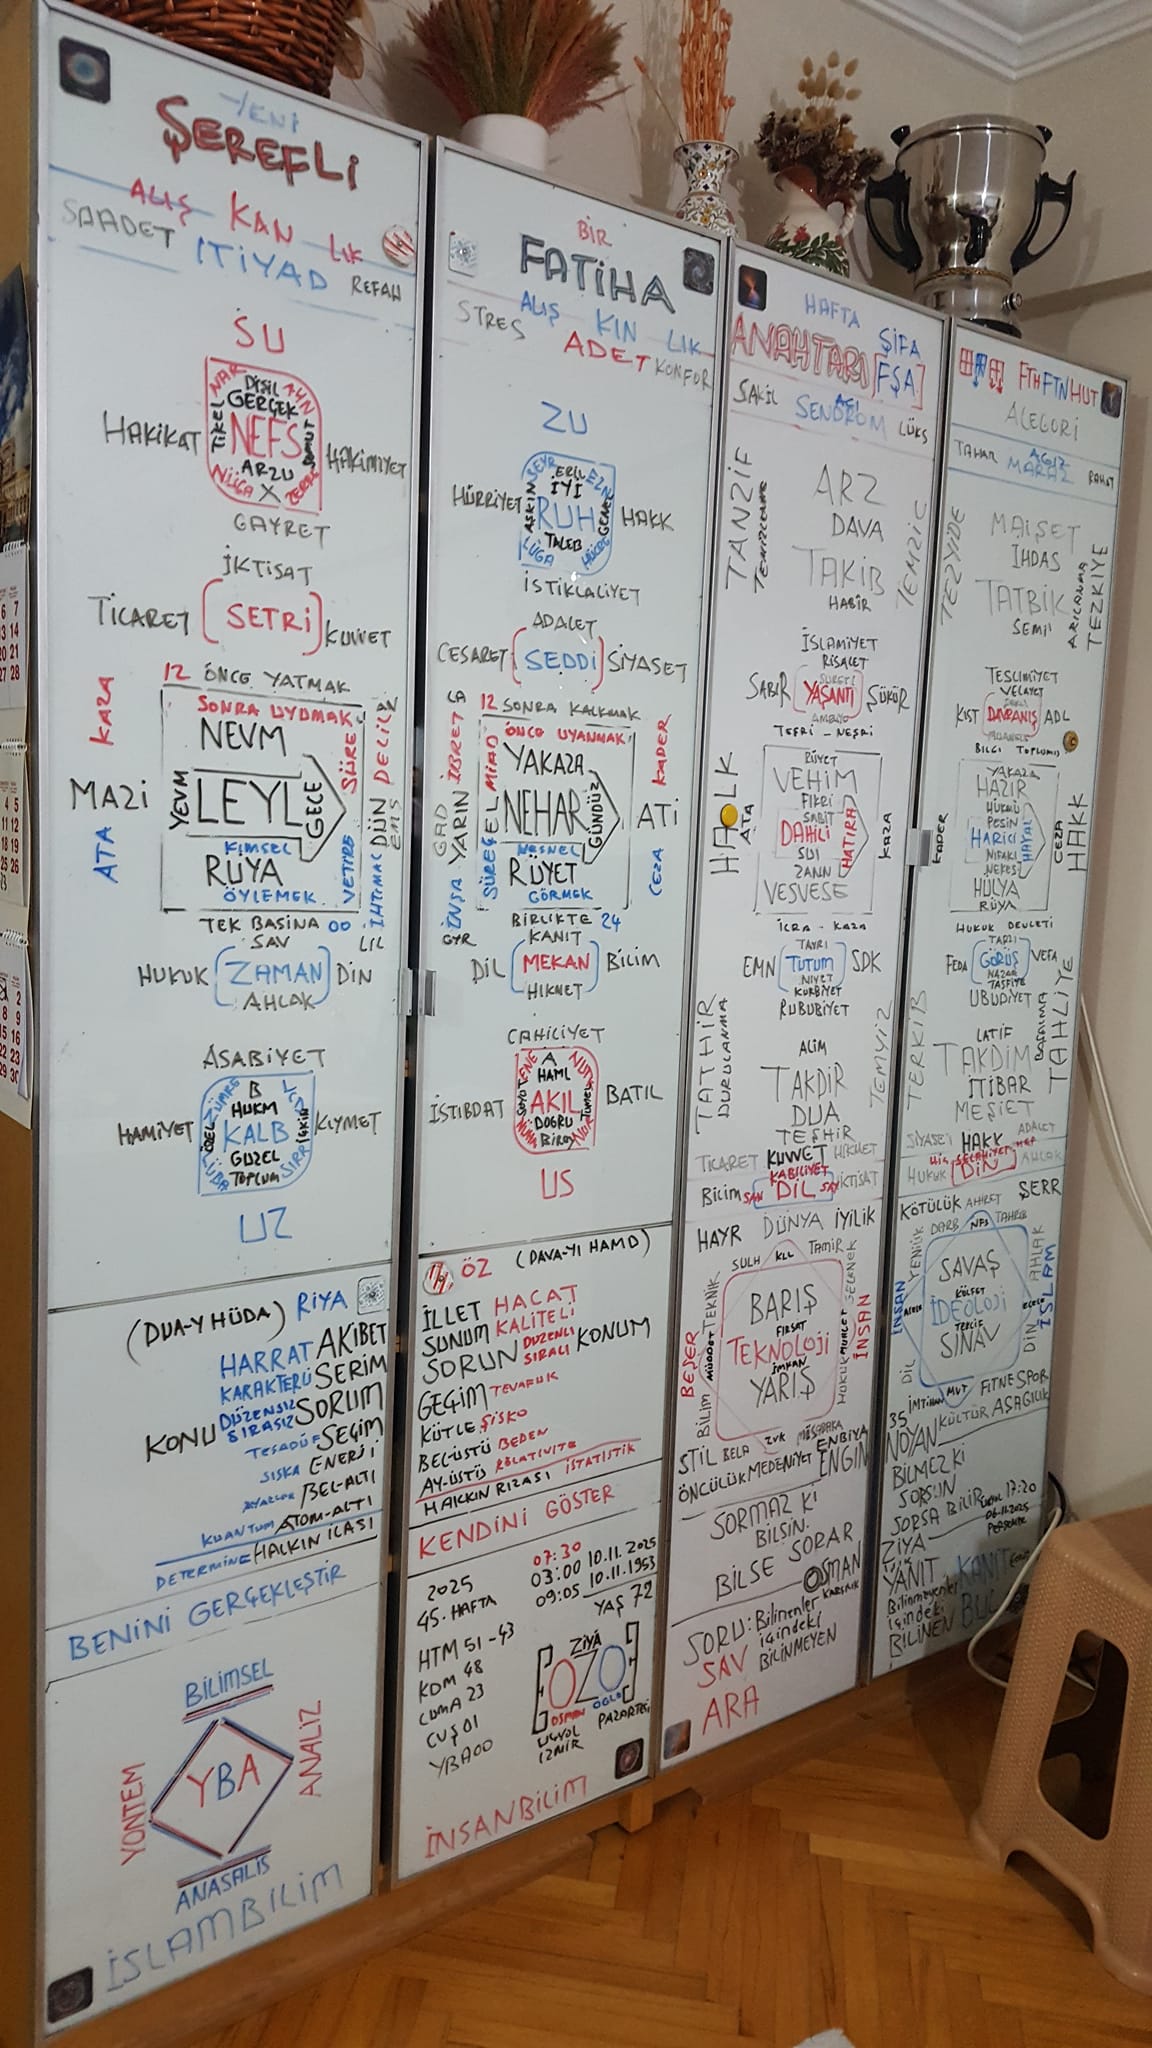 YENİ
ŞEREFLİ
ALIŞ KAN LIK
SAADET İTİYAD REFAH
SU
NAR DİŞİL AYN
GERÇEK
TİKEL NEFS SOMUT
ARZU
NÜGA X ZERRE
HAKİKAT
HAKİMİYET
GAYRET
İKTİSAT
TİCARET [SETRİ] KUVVET
12 ÖNCE YATMAK
SONRA UYUMAK
KAZA
NEVM
SÜRE
DELİL AN
MAZİ
YEVM LEYL GECE
DÜN EMS
ATA
KİMSEL
RÜYA
ÖYLEMEK
VETİRE
İHTİMAL
TEK BAŞINA 00 LİL
SAV
HUKUK [ZAMAN] DİN
AHLAK
ASABİYET
B
HUKM
ÖZEL KALB
GÜZEL
LÜBB TOPLUM SIRR
HAMİYET
KIYMET
UZ
(DUA-Y HÜDA) RİYA
HARRAT AKİBET
KARAKTERÜ SERİM
KONU DÜZENSİZ SIRASIZ SORUM
TESADÜF SEÇİM
SISKA ENERJİ
BEL-ALTI
KUANTUM ATOM-ALTI
DETERMİNE HALKIN İLASI
BENİNİ GERÇEKLEŞTİR
BİLİMSEL
YÖNTEM YBA ANALİZ
ANASALIS
İSLAMBİLİM
BİR
FATİHA
ALIŞ KIN LIK
STRES ADET KONFOR
ZU
SEYR ERİL EZN
İYİ
AŞKIN RUH GENEL
TALEB
LÜGA HÜCRE
HÜRRİYET
HAKK
İSTİKLALİYET
ADALET
CESARET [SEDDİ] SİYASET
LA 12 SONRA KALKMAK
ÖNCE UYANMAK
İBRET
MİAD YAKAZA KADER
GAD YARIN
SÜREÇ EL NEHAR GÜNDÜZ ATİ
NESNEL
RÜYET
GÖRMEK
İNŞA
CEZA
GYR
BİRLİKTE 24
KANIT
DİL [MEKAN] BİLİM
HİKMET
CAHİLİYET
A
HAML
AKIL
DOĞRU
BİREY
İSTİBDAT
BATIL
US
ÖZ (DAVA-YI HAMD)
İLLET HACAT
SUNUM KALİTELİ
SORUN DÜZENLİ SIRALI KONUM
GEÇİM TEVAFUK
KÜTLE ŞİŞKO
BEL-ÜSTÜ BEDEN
AY-ÜSTÜ RÖLATİVİTE
HAKKIN RIZASI İSTATİSTİK
KENDİNİ GÖSTER
07:30
2025 03:00 10.11.2025
45. HAFTA 09:05 10.11.1953
YAŞ 72
HTM 51-43
KDM 48
CUMA 23
CUŞ 01
YBA00
ZİYA
OZO
OSMAN OGLU
ÜÇYOL PAZARTESİ
İZMİR
İNSANBİLİM
HAFTA
ANAHTARI ŞİFA
[FŞA]
ACI
SAKİL SENDROM LÜKS
TANZİF
TEMİZLENME
ARZ
DAVA
TAKİB
HABİR
TEMZİC
İSLAMİYET
RİSALET
SABIR [YAŞANTI] ŞÜKÜR
TEFRİ-NEŞRİ
HALK
ATA
RÜYET
VEHİM
FİKRİ
SABİT
DAHİLİ HATIRA
SUİ
ZANN
VESVESE
KAZA
İCRA-KAZA
TAVRI
EMN [TUTUM] SDK
NİYET
KURBİYET
RUBUBİYET
TATHİR
DURULANMA
ALİM
TAKDİR
DUA
TEŞHİR
TEMYİZ
TİCARET KUVVET HİKMET
KABİLİYET
BİLİM SAN DİL SAY İKTİSAT
HAYR DÜNYA İYİLİK
SULH KLL TAMİR
TEKNİK BARIŞ GELENEK
FIRSAT
BEŞER MÜDDET TEKNOLOJİ MÜHLET İNSAN
İMKAN
YARIŞ
BİLİM HUKUK
STİL BELA ZVK MÜSABAKA ENBİYA
ÖNCÜLÜK MEDENİYET ENGİN
SORMAZ Kİ
BİLSİN.
BİLSE SORAR
OSMAN
KARŞIYAK
SORU: Bilinenler
içindeki
SAV BİLİNMEYEN
ARA
FTH FTN HUT
ALEGORİ
AĞIZ
TAHAR MARAZ RAHAT
TEZYİDE
MAİŞET
İHDAS
TATBİK
SEMİ
ARILANMA
TEZKİYE
TESLİMİYET
VELAYET
KIST [DAVRANIŞ] ADL
BİLGİ TOPLUMU
KADER
YAKAZA
HAZIR
HÜKMÜ
PEŞİN
HARİCİ HAYAL
NİFAKI
NEKES
HÜLYA
RÜYA
CEZA
HAKK
HUKUK DEVLETİ
TARZI
FEDA [GÖRÜŞ] VEFA
NAZAR
TASFİYE
UBUDİYET
TERKİB
LATİF
TAKDİM
İTİBAR
MEŞİET
BAĞIMLI
TAHLİYE
SİYASET HAKK ADALET
HUKUK DİN AHLAK
KÖTÜLÜK AHİRET ŞERR
DARB NFS TAHRİB
YENİLİK SAVAŞ AHLAK
KÜLFET
İNSAN İDEOLOJİ İSLAM
TEKLİF
SINAV
DİL DİN
İMTİHAN MVT FİTNE SPOR
35 KÜLTÜR AŞAĞILIK
NOYAN
BİLMEZ Kİ
SORSUN
SORSA BİLİR 17:20
06.11.2025
PERŞEMBE
ZİYA
YANIT KANIT
Bilinmeyenler
içindeki
BİLİNEN BUL